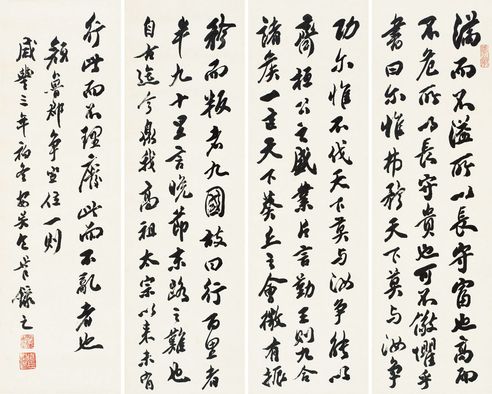 滿而不溢所以長守富也高而
不危所以長守貴也可不儆懼乎
書曰尔惟弗矜天下莫与汝争
功尔惟不伐天下莫与汝争能以
齊桓公之盛業片言勤王則九合
諸侯一主天下葵丘之會微有振
矜而叛者九國故曰行百里者
半九十里言晚節末路之難也
自古迄今我高祖太宗以来未有
行此而不理廢此而不亂者也
顔魯郡争坐位一則
咸豐三年初錄之